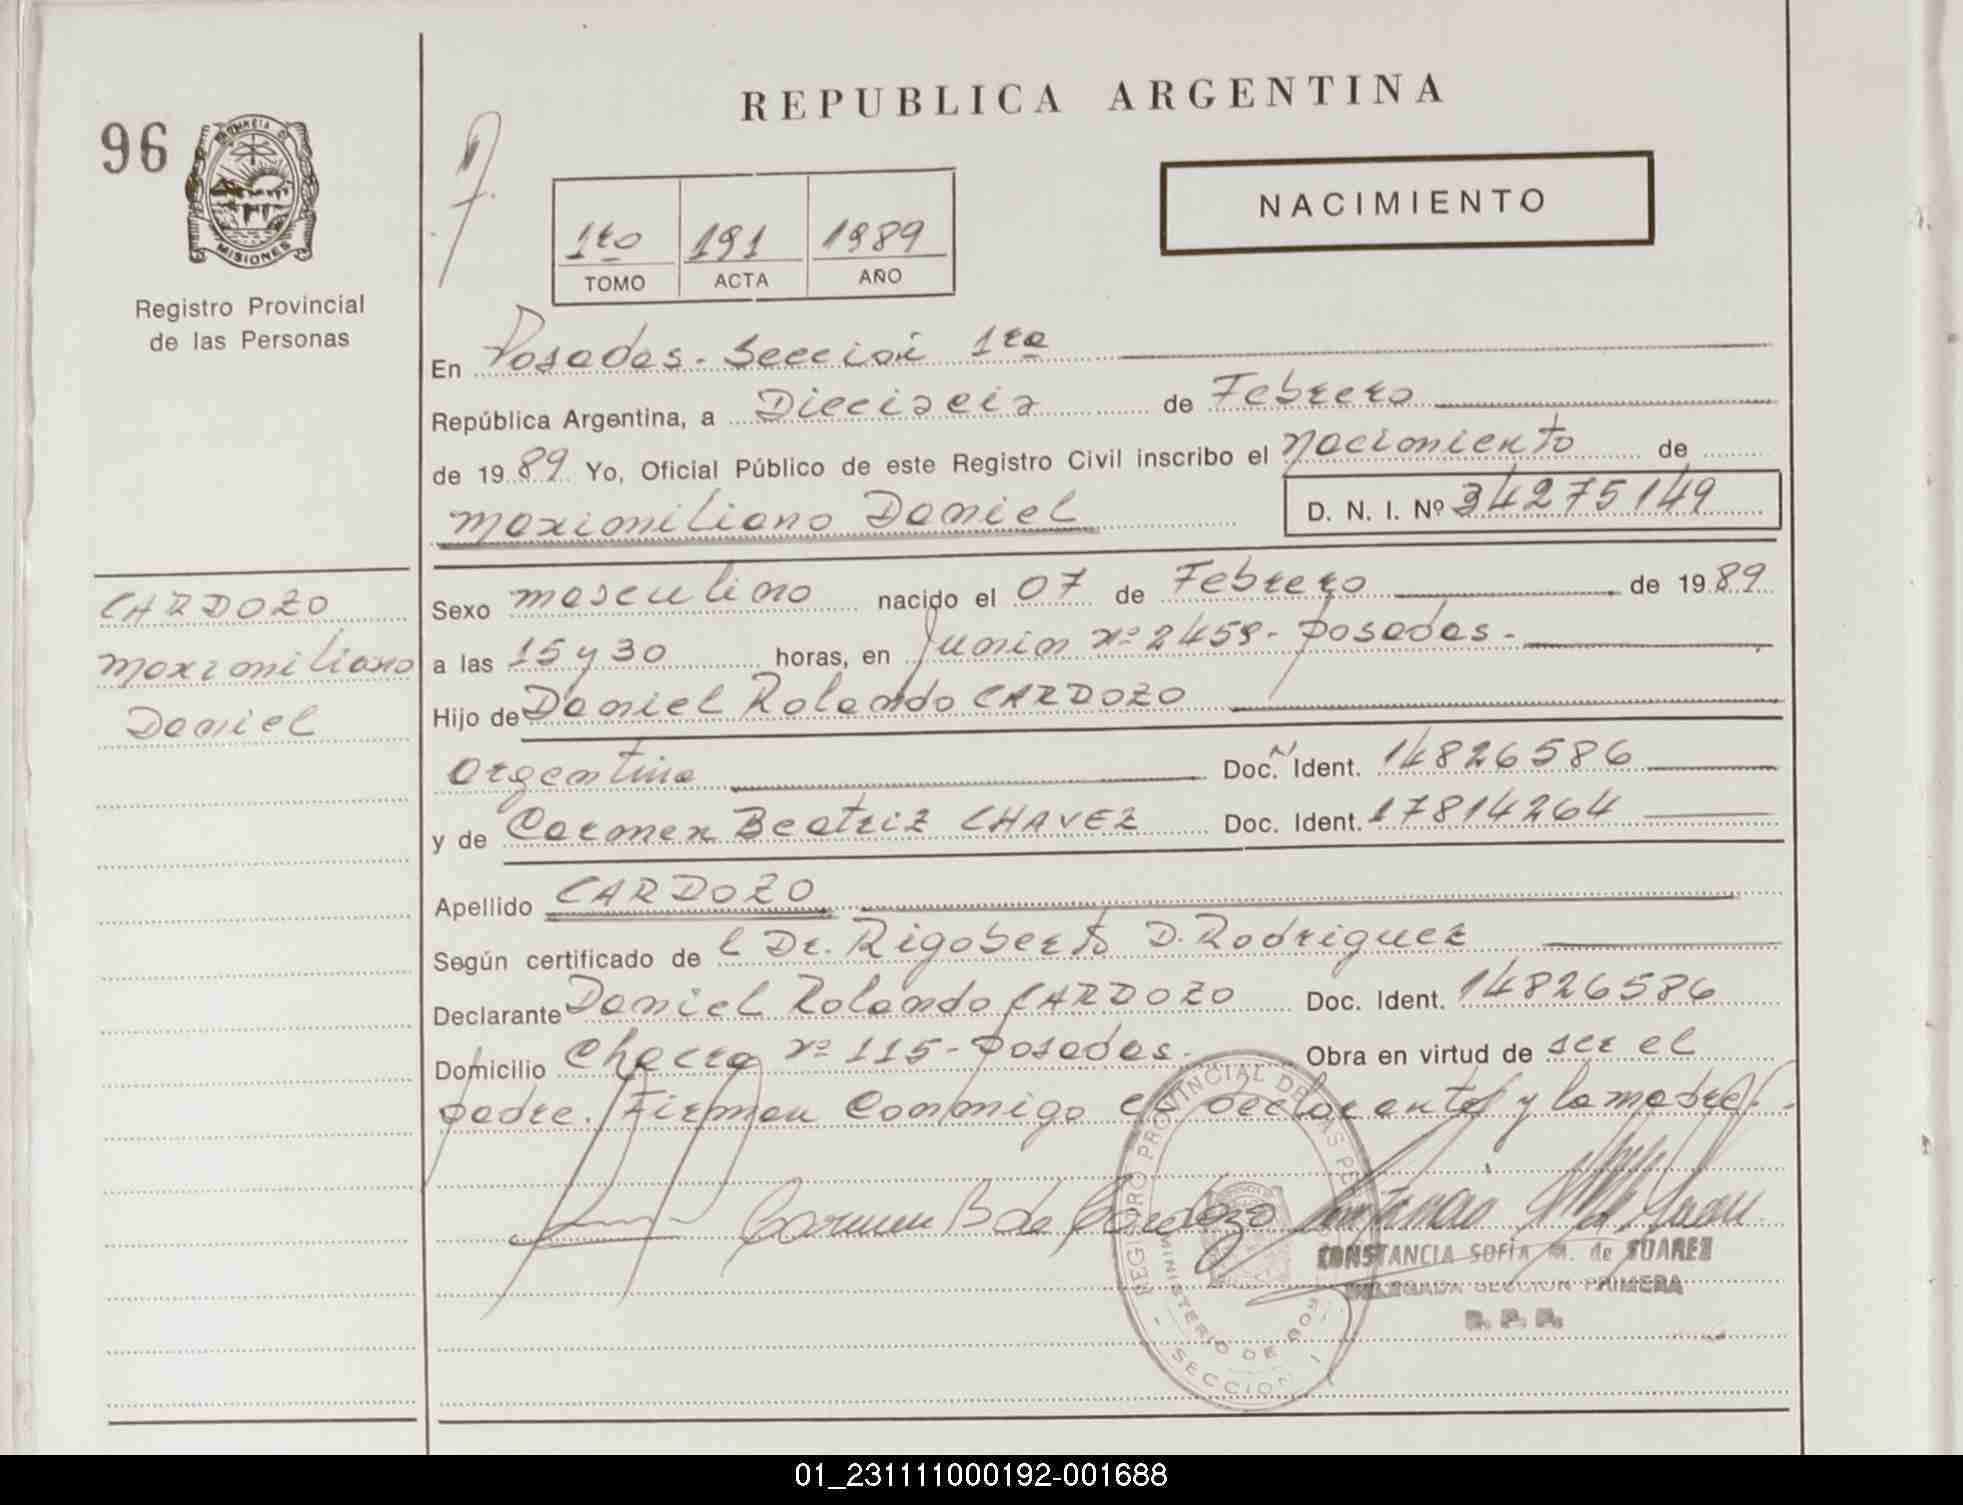 REPUBLICA ARGENTINA
96
PROVINCIA DE
MISIONES
Registro Provincial
de las Personas
1ro 191 1989
TOMO ACTA AÑO
NACIMIENTO
En Posadas - Sección 1ra
República Argentina, a Dieciseis de Febrero
de 1989 Yo, Oficial Público de este Registro Civil inscribo el nacimiento de
Maximiliano Daniel D. N. I. Nº 34275149
CARDOZO
Maximiliano
Daniel
Sexo masculino nacido el 07 de Febrero de 1989
a las 15 y 30 horas, en Junin nº 2459 - Posadas -
Hijo de Daniel Rolando CARDOZO
Argentina Doc. Ident. 14826586
y de Carmen Beatriz CHAVEZ Doc. Ident. 17814264
Apellido CARDOZO
Según certificado de l Dr. Rigoberto D. Rodriguez
Declarante Daniel Rolando CARDOZO Doc. Ident. 14826586
Domicilio Chacra nº 115 - Posadas - Obra en virtud de ser el
padre. Firman Conmigo el declarante y la madre.
Carmen B de Cardozo
REGISTRO PROVINCIAL DE LAS
MINISTERIO DE GOB
SECCION
CONSTANCIA SOFIA M. de SUAREZ
DELEGADA SECCION PRIMERA
R. P. P.
01_231111000192-001688